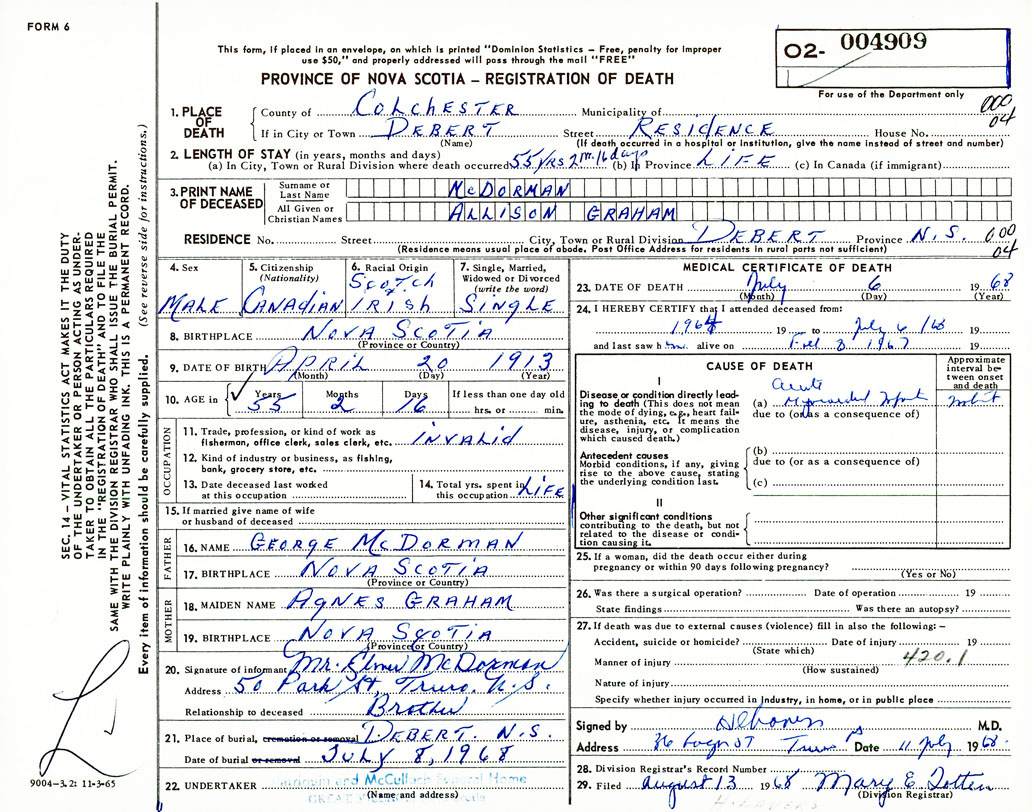 FORM 6
This form, if placed in an envelope, on which is printed "Dominion Statistics – Free, penalty for improper
use $50," and properly addressed will pass through the mail "FREE"
02- 004909
For use of the Department only
PROVINCE OF NOVA SCOTIA – REGISTRATION OF DEATH
000
04
1. PLACE OF DEATH
County of COLCHESTER Municipality of
If in City or Town DEBERT Street RESIDENCE House No.
(Name) (If death occurred in a hospital or institution, give the name instead of street and number)
2. LENGTH OF STAY (in years, months and days)
(a) In City, Town or Rural Division where death occurred 55 yrs 2 m. 16 days (b) In Province LIFE (c) In Canada (if immigrant)
3. PRINT NAME OF DECEASED
Surname or Last Name McDORMAN
All Given or Christian Names ALLISON GRAHAM
RESIDENCE No. Street City, Town or Rural Division DEBERT Province N.S. 000
04
(Residence means usual place of abode. Post Office Address for residents in rural parts not sufficient)
4. Sex MALE
5. Citizenship (Nationality) CANADIAN
6. Racial Origin SCOTCH IRISH
7. Single, Married, Widowed or Divorced (write the word) SINGLE
8. BIRTHPLACE NOVA SCOTIA
(Province or Country)
9. DATE OF BIRTH APRIL 20 1913
(Month) (Day) (Year)
10. AGE in Years 55 Months 2 Days 16 If less than one day old hrs. or min.
OCCUPATION
11. Trade, profession, or kind of work as fisherman, office clerk, sales clerk, etc. INVALID
12. Kind of industry or business, as fishing, bank, grocery store, etc.
13. Date deceased last worked at this occupation
14. Total yrs. spent in this occupation LIFE
15. If married give name of wife or husband of deceased
FATHER
16. NAME GEORGE McDORMAN
17. BIRTHPLACE NOVA SCOTIA
(Province or Country)
MOTHER
18. MAIDEN NAME AGNES GRAHAM
19. BIRTHPLACE NOVA SCOTIA
(Province or Country)
20. Signature of informant Mr. Elmer McDorman
Address 50 Park St, Truro. N.S.
Relationship to deceased Brother
21. Place of burial, cremation or removal DEBERT. N.S.
Date of burial or removal JULY 8, 1968
22. UNDERTAKER and McCulloch Funeral Home
(Name and address)
MEDICAL CERTIFICATE OF DEATH
23. DATE OF DEATH July 6 1968
(Month) (Day) (Year)
24. I HEREBY CERTIFY that I attended deceased from:
1964 19 to July 6/68 19
and last saw h alive on 1967 19
CAUSE OF DEATH
Approximate interval between onset and death
I
Disease or condition directly leading to death (This does not mean the mode of dying, e.g., heart failure, asthenia, etc. It means the disease, injury, or complication which caused death.)
(a) Acute Myocardial Infarct
due to (or as a consequence of)
Antecedent causes
Morbid conditions, if any, giving rise to the above cause, stating the underlying condition last.
(b)
due to (or as a consequence of)
(c)
II
Other significant conditions contributing to the death, but not related to the disease or condition causing it.
25. If a woman, did the death occur either during pregnancy or within 90 days following pregnancy?
(Yes or No)
26. Was there a surgical operation? Date of operation 19
State findings Was there an autopsy?
27. If death was due to external causes (violence) fill in also the following: –
Accident, suicide or homicide? Date of injury 19
(State which)
Manner of injury 420.1
(How sustained)
Nature of injury
Specify whether injury occurred in industry, in home, or in public place
Signed by M.D.
Address Truro Date 11 July 1968.
28. Division Registrar's Record Number
29. Filed August 13 1968 Mary E. Totten
(Division Registrar)
SEC. 14 – VITAL STATISTICS ACT MAKES IT THE DUTY
OF THE UNDERTAKER OR PERSON ACTING AS UNDER-
TAKER TO OBTAIN ALL THE PARTICULARS REQUIRED
IN THE "REGISTRATION OF DEATH" AND TO FILE THE
SAME WITH THE DIVISION REGISTRAR WHO SHALL ISSUE THE BURIAL PERMIT.
WRITE PLAINLY WITH UNFADING INK. THIS IS A PERMANENT RECORD.
Every item of information should be carefully supplied. (See reverse side for instructions.)
9004–3.2: 11-3-65